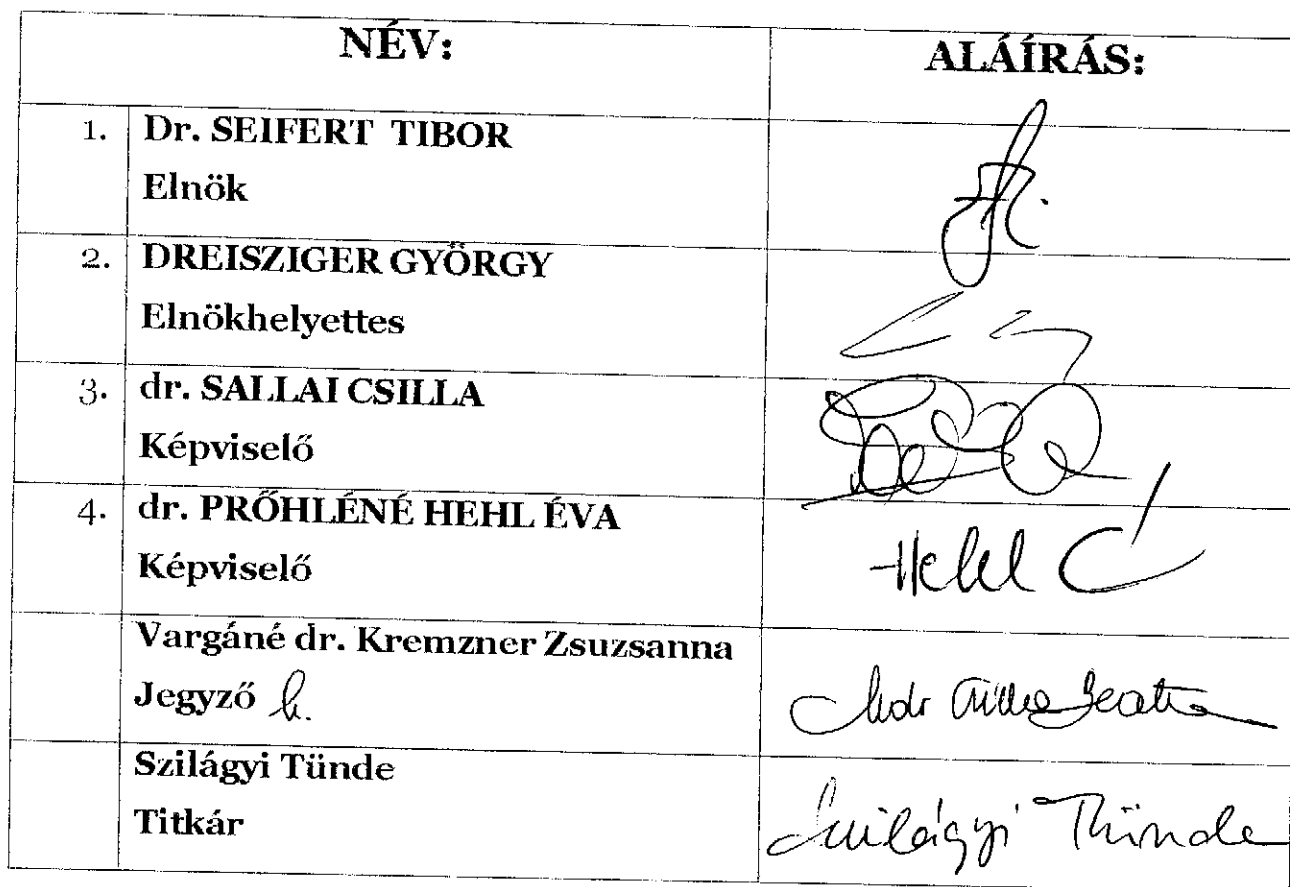 NÉV:
ALÁÍRÁS:
1. Dr. SEIFERT TIBOR
Elnök
2. DREISZIGER GYÖRGY
Elnökhelyettes
3. dr. SALLAI CSILLA
Képviselő
4. dr. PRŐHLÉNÉ HEHL ÉVA
Képviselő
Hehl É
Vargáné dr. Kremzner Zsuzsanna
Jegyző h.
Szilágyi Tünde
Titkár
Szilágyi Tünde